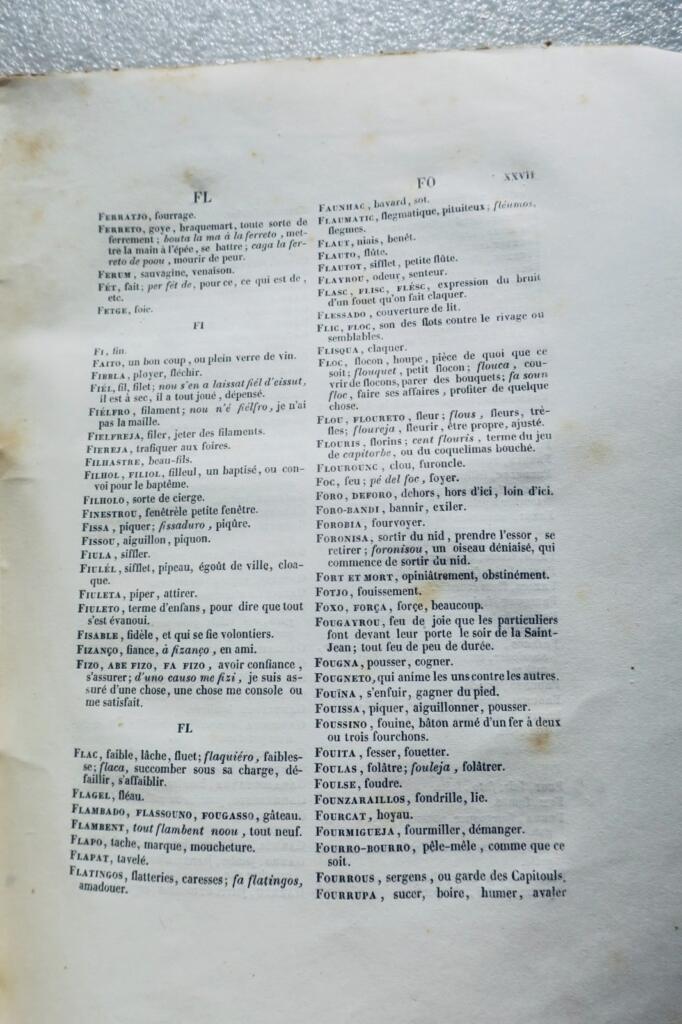 FL
FERRATJO, fourrage.
FERRETO, goye, braquemart, toute sorte de
ferrement; bouta la ma à la ferreto, met-
tre la main à l'épée, se battre; caga la fer-
reto de poou, mourir de peur.
FERUM, sauvagine, venaison.
FÉT, fait; per fét de, pour ce, ce qui est de,
etc.
FETGE, foie.
FI
FI, fin.
FAITO, un bon coup, ou plein verre de vin.
FIBBLA, ployer, fléchir.
FIÉL, fil, filet; nou s'en a laissat fiél d'eissut,
il est à sec, il a tout joué, dépensé.
FIÉLFRO, filament; nou n'é fiélfro, je n'ai
pas la maille.
FIELFREJA, filer, jeter des filaments.
FIEREJA, trafiquer aux foires.
FILHASTRE, beau-fils.
FILHOL, FILIOL, filleul, un baptisé, ou con-
voi pour le baptême.
FILHOLO, sorte de cierge.
FINESTROU, fenêtrèle petite fenêtre.
FISSA, piquer; fissaduro, piqûre.
FISSOU, aiguillon, piquon.
FIULA, siffler.
FIULÉL, sifflet, pipeau, égoût de ville, cloa-
que.
FIULETA, piper, attirer.
FIULETO, terme d'enfans, pour dire que tout
s'est évanoui.
FISABLE, fidèle, et qui se fie volontiers.
FIZANÇO, fiance, à fizanço, en ami.
FIZO, ABE FIZO, FA FIZO, avoir confiance,
s'assurer; d'uno causo me fizi, je suis as-
suré d'une chose, une chose me console ou
me satisfait.
FL
FLAC, faible, lâche, fluet; flaquiéro, faibles-
se; flaca, succomber sous sa charge, dé-
faillir, s'affaiblir.
FLAGEL, fléau.
FLAMBADO, FLASSOUNO, FOUGASSO, gâteau.
FLAMBENT, tout flambent noou, tout neuf.
FLAPO, tache, marque, moucheture.
FLAPAT, tavelé.
FLATINGOS, flatteries, caresses; fa flatingos,
amadouer.
FO
XXVII
FAUNHAC, bavard, sot.
FLAUMATIC, flegmatique, pituiteux; fléumos,
flegmes.
FLAUT, niais, benêt.
FLAUTO, flûte.
FLAUTOT, sifflet, petite flûte.
FLAYROU, odeur, senteur.
FLASC, FLISC, FLÉSC, expression du bruit
d'un fouet qu'on fait claquer.
FLESSADO, couverture de lit.
FLIC, FLOC, son des flots contre le rivage ou
semblables.
FLISQUA, claquer.
FLOC, flocon, houpe, pièce de quoi que ce
soit; flouquet, petit flocon; flouca, cou-
vrir de flocons, parer des bouquets; fa soun
floc, faire ses affaires, profiter de quelque
chose.
FLOU, FLOURETO, fleur; flous, fleurs, trè-
fles; floureja, fleurir, être propre, ajusté.
FLOURIS, florins; cent flouris, terme du jeu
de capitorbe, ou du coquelimas bouché.
FLOUROUNC, clou, furoncle.
FOC, feu; pé del foc, foyer.
FORO, DEFORO, dehors, hors d'ici, loin d'ici.
FORO-BANDI, bannir, exiler.
FOROBIA, fourvoyer.
FORONISA, sortir du nid, prendre l'essor, se
retirer; foronisou, un oiseau déniaisé, qui
commence de sortir du nid.
FORT ET MORT, opiniâtrement, obstinément.
FOTJO, fouissement.
FOXO, FORÇA, forçe, beaucoup.
FOUGAYROU, feu de joie que les particuliers
font devant leur porte le soir de la Saint-
Jean; tout feu de peu de durée.
FOUGNA, pousser, cogner.
FOUGNETO, qui anime les uns contre les autres.
FOUÏNA, s'enfuir, gagner du pied.
FOUISSA, piquer, aiguillonner, pousser.
FOUSSINO, fouine, bâton armé d'un fer à deux
ou trois fourchons.
FOUITA, fesser, fouetter.
FOULAS, folâtre; fouleja, folâtrer.
FOULSE, foudre.
FOUNZARAILLOS, fondrille, lie.
FOURCAT, hoyau.
FOURMIGUEJA, fourmiller, démanger.
FOURRO-BOURRO, pêle-mêle, comme que ce
soit.
FOURROUS, sergens, ou garde des Capitouls.
FOURRUPA, sucer, boire, humer, avaler